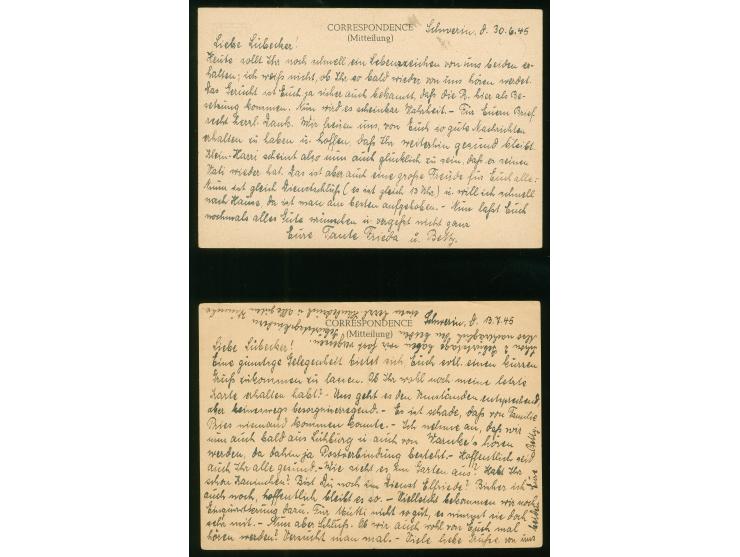 CORRESPONDENCE
(Mitteilung)
Schwerin, d. 30.6.45
Liebe Lübecker!
Heute sollt Ihr noch schnell ein Lebenszeichen von uns beiden er-
halten; ich weiß nicht, ob Ihr so bald wieder von uns hören werdet.
Das Gerücht ist Euch ja sicher auch bekannt, daß die R. hier als Be-
satzung kommen. Nun wird es scheinbar Wahrheit. - Für Euern Brief
recht herzl. Dank. Wir freuen uns, von Euch so gute Nachrichten
erhalten zu haben u. hoffen, daß Ihr weiterhin gesund bleibt.
Klein-Harri scheint also nun auch glücklich zu sein, daß er seinen
Vati wieder hat. Das ist aber auch eine große Freude für Euch alle.
Nun ist gleich Dienstschluß (es ist gleich 13 Uhr) u. will ich schnell
nach Hause, da ist man am besten aufgehoben. - Nun laßt Euch
nochmals alles Gute wünschen u. vergeßt nicht ganz
Eure Tante Frieda u. Betty.
CORRESPONDENCE
(Mitteilung)
Schwerin, d. 13.7.45
Liebe Lübecker!
Eine günstige Gelegenheit bietet sich Euch evtl. einen kurzen
Gruß zukommen zu lassen. Ob Ihr wohl noch meine letzte
Karte erhalten habt? - Uns geht es den Umständen entsprechend,
aber keineswegs besorgniserregend. - Es ist schade, daß von Familie
Pries niemand kommen konnte. - Ich nehme an, daß wir
nun auch bald aus Lühburg u. auch von Warnke's hören
werden, da dahin ja Postverbindung besteht. - Hoffentlich seid
auch Ihr alle gesund. - Wie sieht es im Garten aus? Habt Ihr
schon Kaninchen? Bist Du noch im Dienst Elfriede? Bisher ich
auch noch, hoffentlich bleibt es so. - Vielleicht bekommen wir noch
Einquartierung dazu. Für Mutti nicht so gut, es nimmt sie doch
sehr mit. - Nun aber Schluß. Ob wir auch wohl von Euch mal
hören werden? Versucht man mal. - Viele liebe Grüße von uns
beiden Eure Betty.